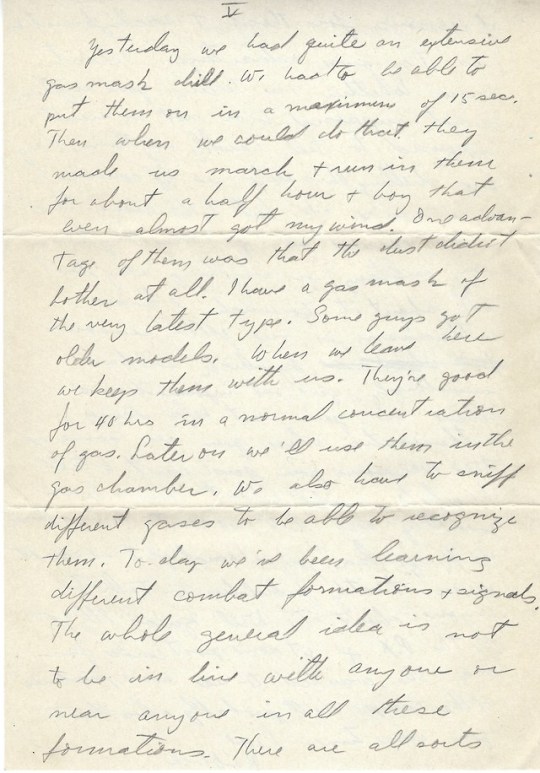 V
Yesterday we had quite an extensive
gas mask drill. We had to be able to
put them on in a maximum of 15 sec.
Then when we could do that they
made us march + run in them
for about a half hour + boy that
even almost got my wind. One advan-
tage of them was that the dust didn't
bother at all. I have a gas mask of
the very latest type. Some guys got
older models. When we leave here
we keep them with us. They're good
for 40 hrs in a normal concentration
of gas. Later on we'll use them in the
gas chamber. We also have to sniff
different gases to be able to recognize
them. To-day we've been learning
different combat formations + signals.
The whole general idea is not
to be in line with anyone or
near anyone in all these
formations. There are all sorts